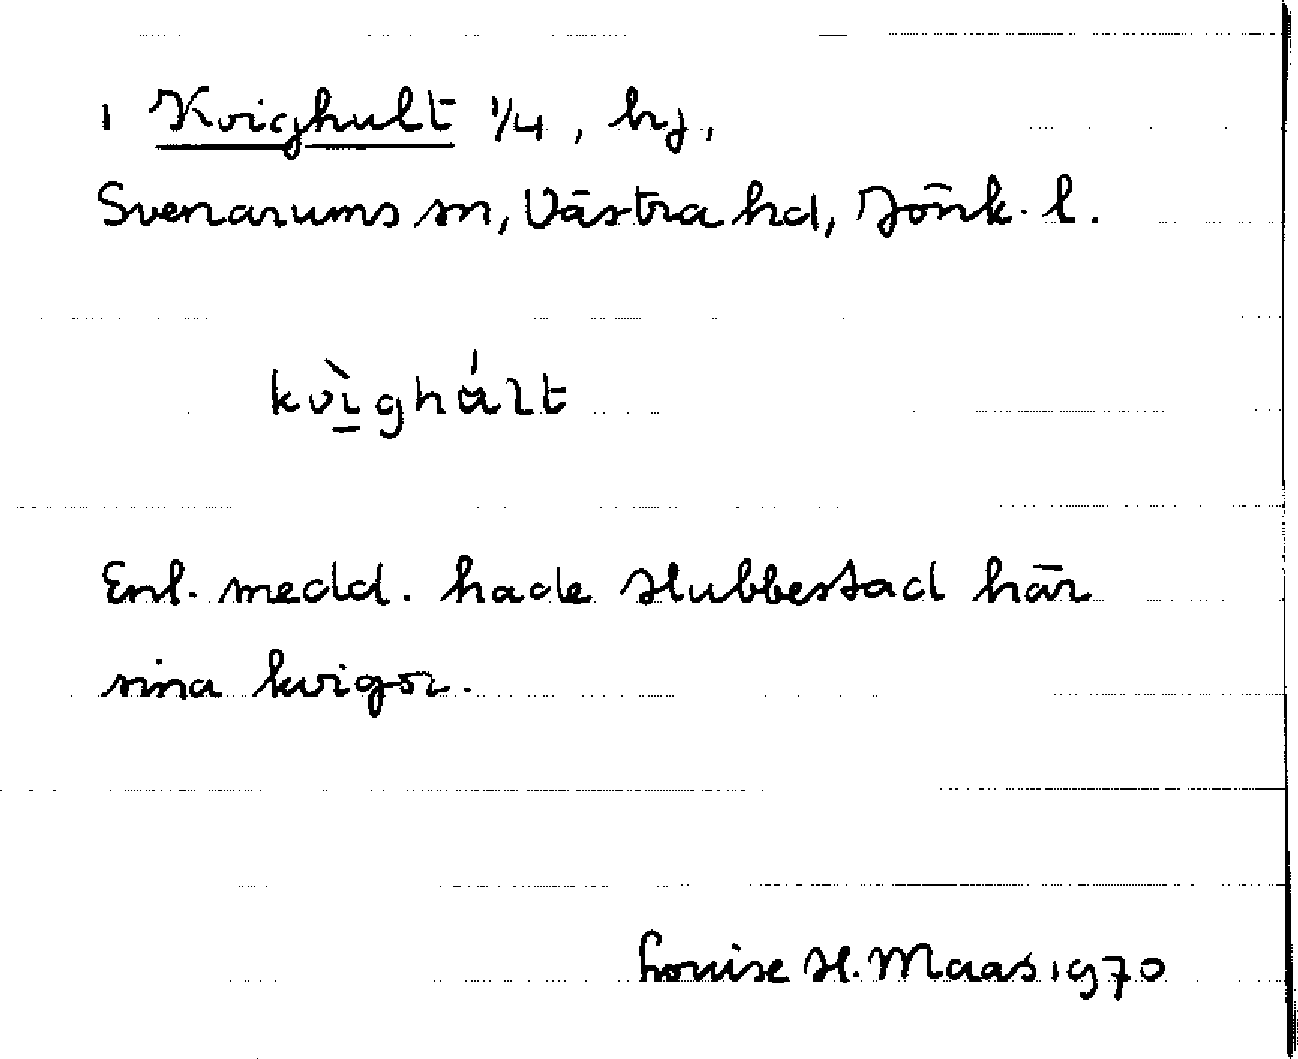 1 Kvighult 1/4, by,
Svenarums sn, Västra hd, Jönk. l.
kvìghált
Enl. medd. hade Hubbestad här
sina kvigor.
Louise H. Maas 1970